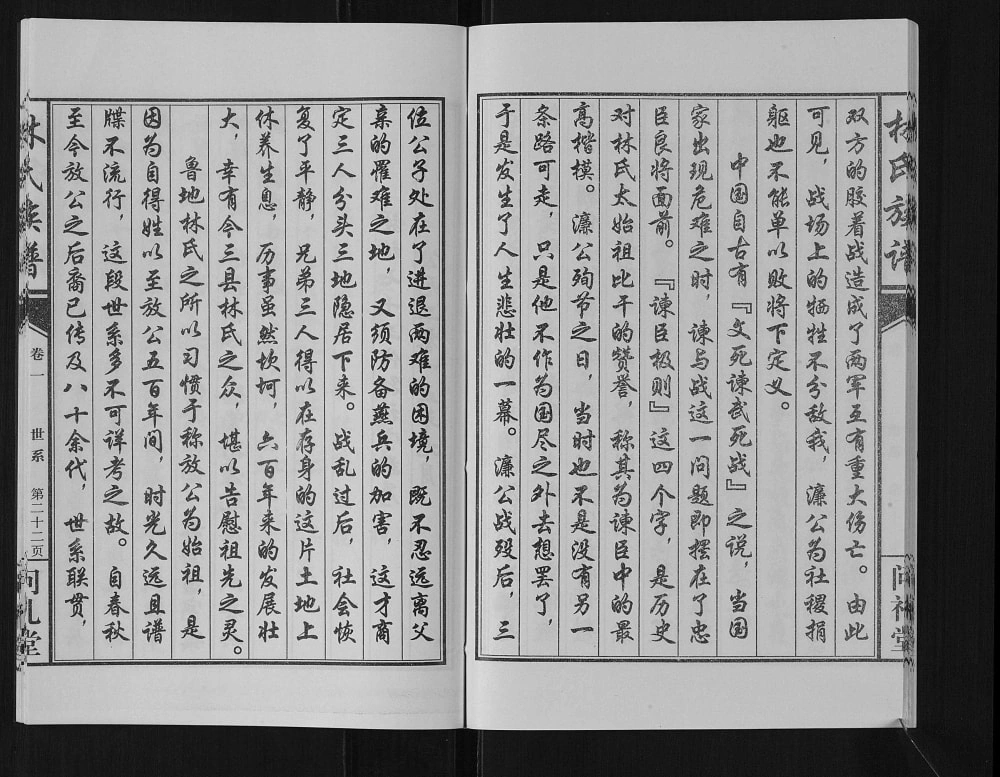 林氏族谱
问礼堂
双方的胶着战造成了两军互有重大伤亡。由此
可见，战场上的牺牲不分敌我，濂公为社稷捐
躯也不能单以败将下定义。
中国自古有『文死谏武死战』之说，当国
家出现危难之时，谏与战这一问题即摆在了忠
臣良将面前。『谏臣极则』这四个字，是历史
对林氏太始祖比干的赞誉，称其为谏臣中的最
高楷模。濂公殉节之日，当时也不是没有另一
条路可走，只是他不作为国尽之外去想罢了，
于是发生了人生悲壮的一幕。濂公战殁后，三
位公子处在了进退两难的困境，既不忍远离父
亲的罹难之地，又须防备燕兵的加害，这才商
定三人分头三地隐居下来。战乱过后，社会恢
复了平静，兄弟三人得以在存身的这片土地上
休养生息，历事虽然坎坷，六百年来的发展壮
大，幸有今三县林氏之众，堪以告慰祖先之灵。
鲁地林氏之所以习惯于称放公为始祖，是
因为自得姓以至放公五百年间，时光久远且谱
牒不流行，这段世系多不可详考之故。自春秋
至今放公之后裔已传及八十余代，世系联贯，
林氏族谱
卷一
世系
第二十二页
问礼堂